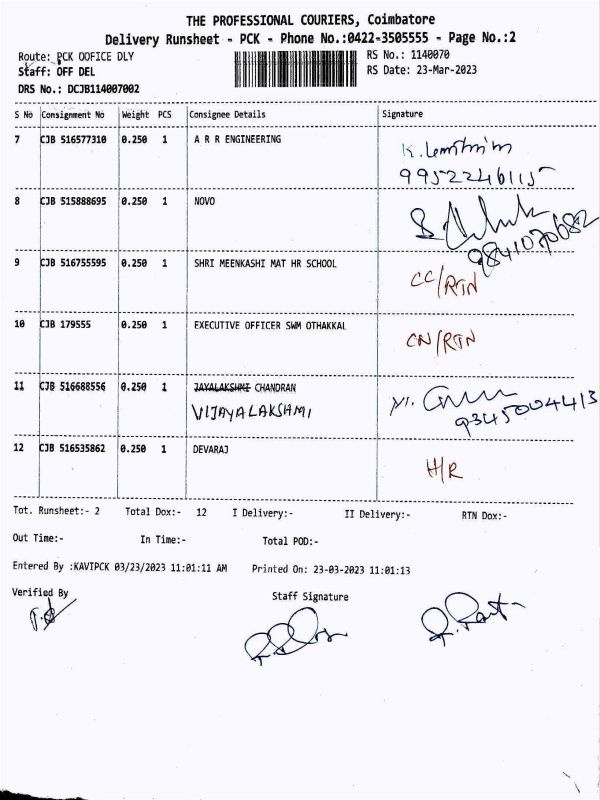 THE PROFESSIONAL COURIERS, Coimbatore
Delivery Runsheet - PCK - Phone No.:0422-3505555 - Page No.:2
Route: PCK OOFICE DLY RS No.: 1140070
Staff: OFF DEL RS Date: 23-Mar-2023
DRS No.: DCJB114007002
S No Consignment No Weight PCS Consignee Details Signature
7 CJB 516577310 0.250 1 A R R ENGINEERING
9952246115
8 CJB 515888695 0.250 1 NOVO
9841070682
9 CJB 516755595 0.250 1 SHRI MEENKASHI MAT HR SCHOOL CC/RTN
10 CJB 179555 0.250 1 EXECUTIVE OFFICER SWM OTHAKKAL CN/RTN
11 CJB 516688556 0.250 1 JAYALAKSHMI CHANDRAN
VIJAYALAKSHMI 9345004413
12 CJB 516535862 0.250 1 DEVARAJ H/R
Tot. Runsheet:- 2 Total Dox:- 12 I Delivery:- II Delivery:- RTN Dox:-
Out Time:- In Time:- Total POD:-
Entered By :KAVIPCK 03/23/2023 11:01:11 AM Printed On: 23-03-2023 11:01:13
Verified By Staff Signature